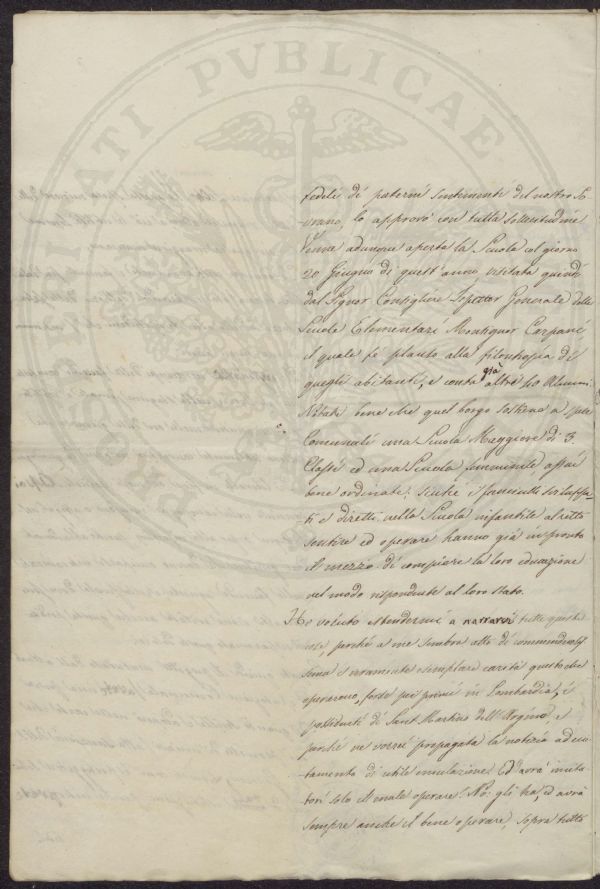 PROPRIETATI PVBLICAE
fedele di paterni sentimenti del nostro So-
vrano, lo approvò con tutta sollecitudine
Venne adunque aperta la Scuola col giorno
20 Giugno di quest'anno, visitata quindi
dal Signor Consigliere Ispettor Generale delle
Scuole Elementari Monsignor Carpani
il quale fè plauso alla filantropia di
quegli abitanti, e conta già altri 40 Alunni
Notate bene che quel borgo sostiene a spese
Comunali una Scuola Maggiore di 3.
Classi ed una Scuola femminile assai
bene ordinate; sicché i fanciulli sviluppa-
ti e diretti nella Scuola infantile al retto
sentire ed operare hanno già in pronto
il mezzo di compiere la loro educazione
nel modo rispondente al loro stato.
Ho voluto estendermi a narrarvi tutte queste
cose, perché a me sembra atto di commendevolis
sima e veramente esemplare carità questo che
operarono, forse pei primi in Lombardia, i
possidenti di Sant Martino dell'Argine, e
perché ne vorrei propagata la notizia ad ecci-
tamento di utile emulazione. Ed avrà imita
tori solo il male operare! No: gli ha, ed avrà
sempre anche il bene operare, sopra tutto